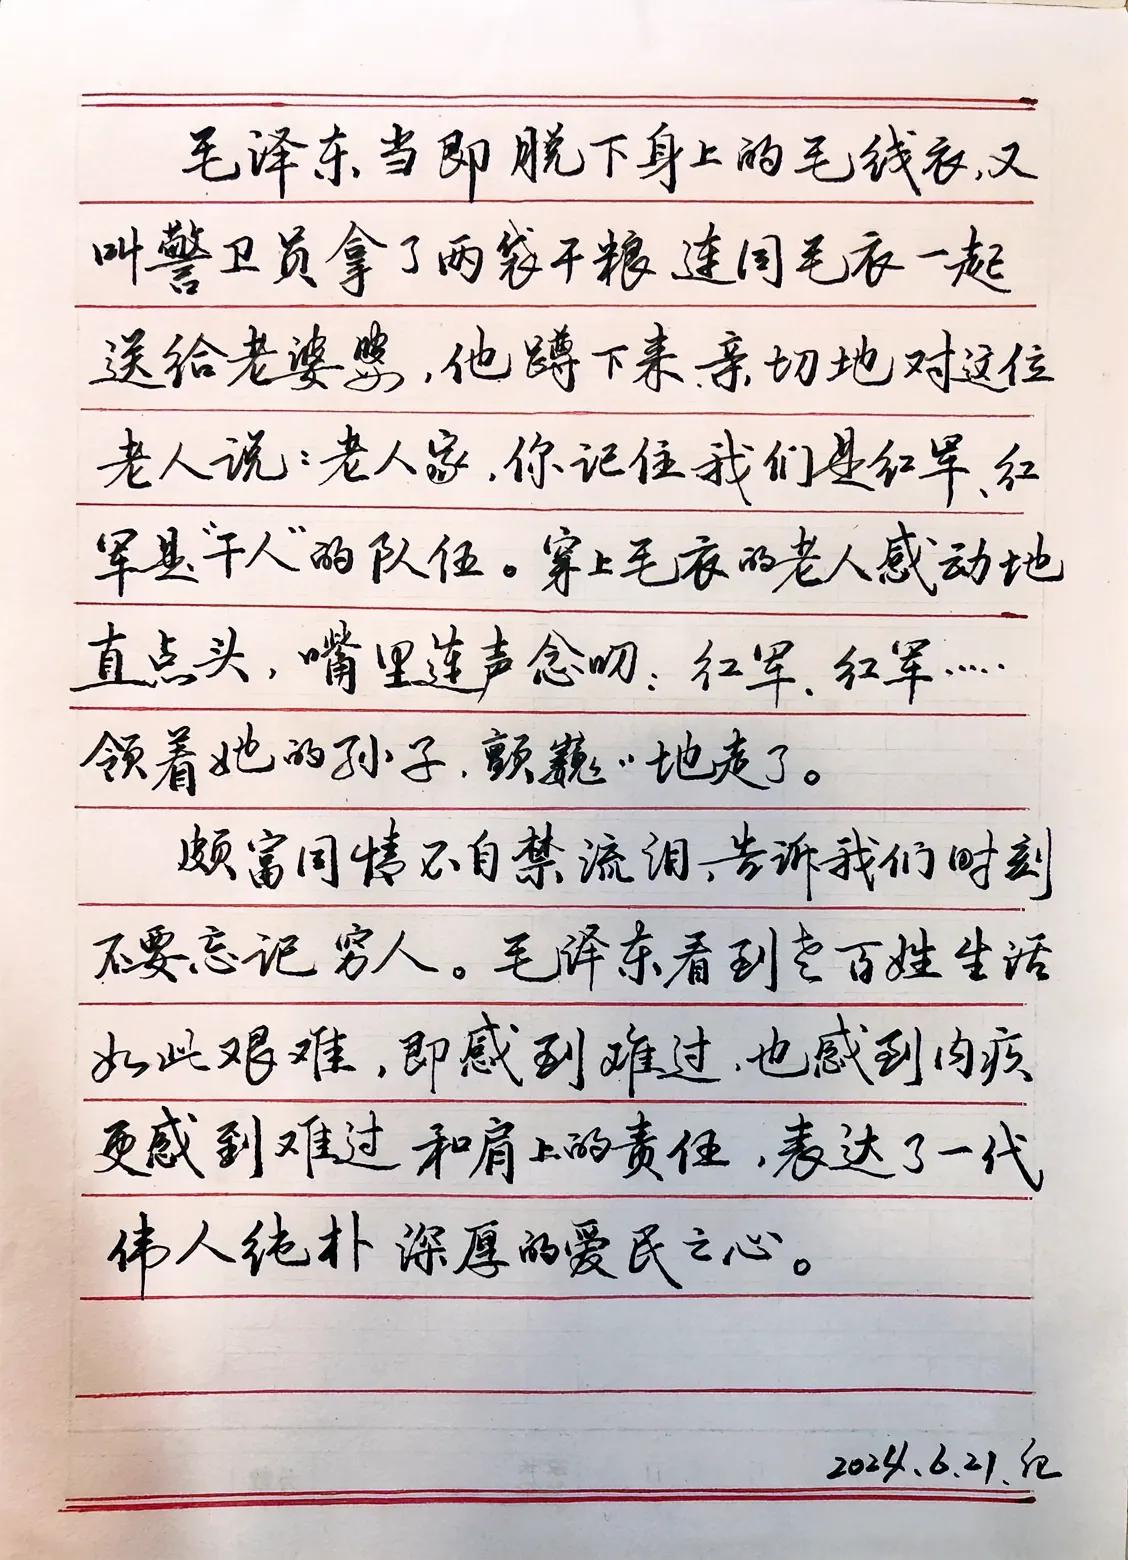 毛泽东当即脱下身上的毛线衣,又
叫警卫员拿了两袋干粮连同毛衣一起
送给老婆婆,他蹲下来、亲切地对这位
老人说:老人家,你记住我们是红军、红
军是“干人”的队伍。穿上毛衣的老人感动地
直点头,嘴里连声念叨:红军、红军……
领着她的孙子,颤巍〃地走了。
颇富同情不自禁流泪、告诉我们时刻
不要忘记穷人。毛泽东看到老百姓生活
如此艰难,即感到难过,也感到内疚
更感到难过和肩上的责任,表达了一代
伟人纯朴深厚的爱民之心。
2024.6.21.